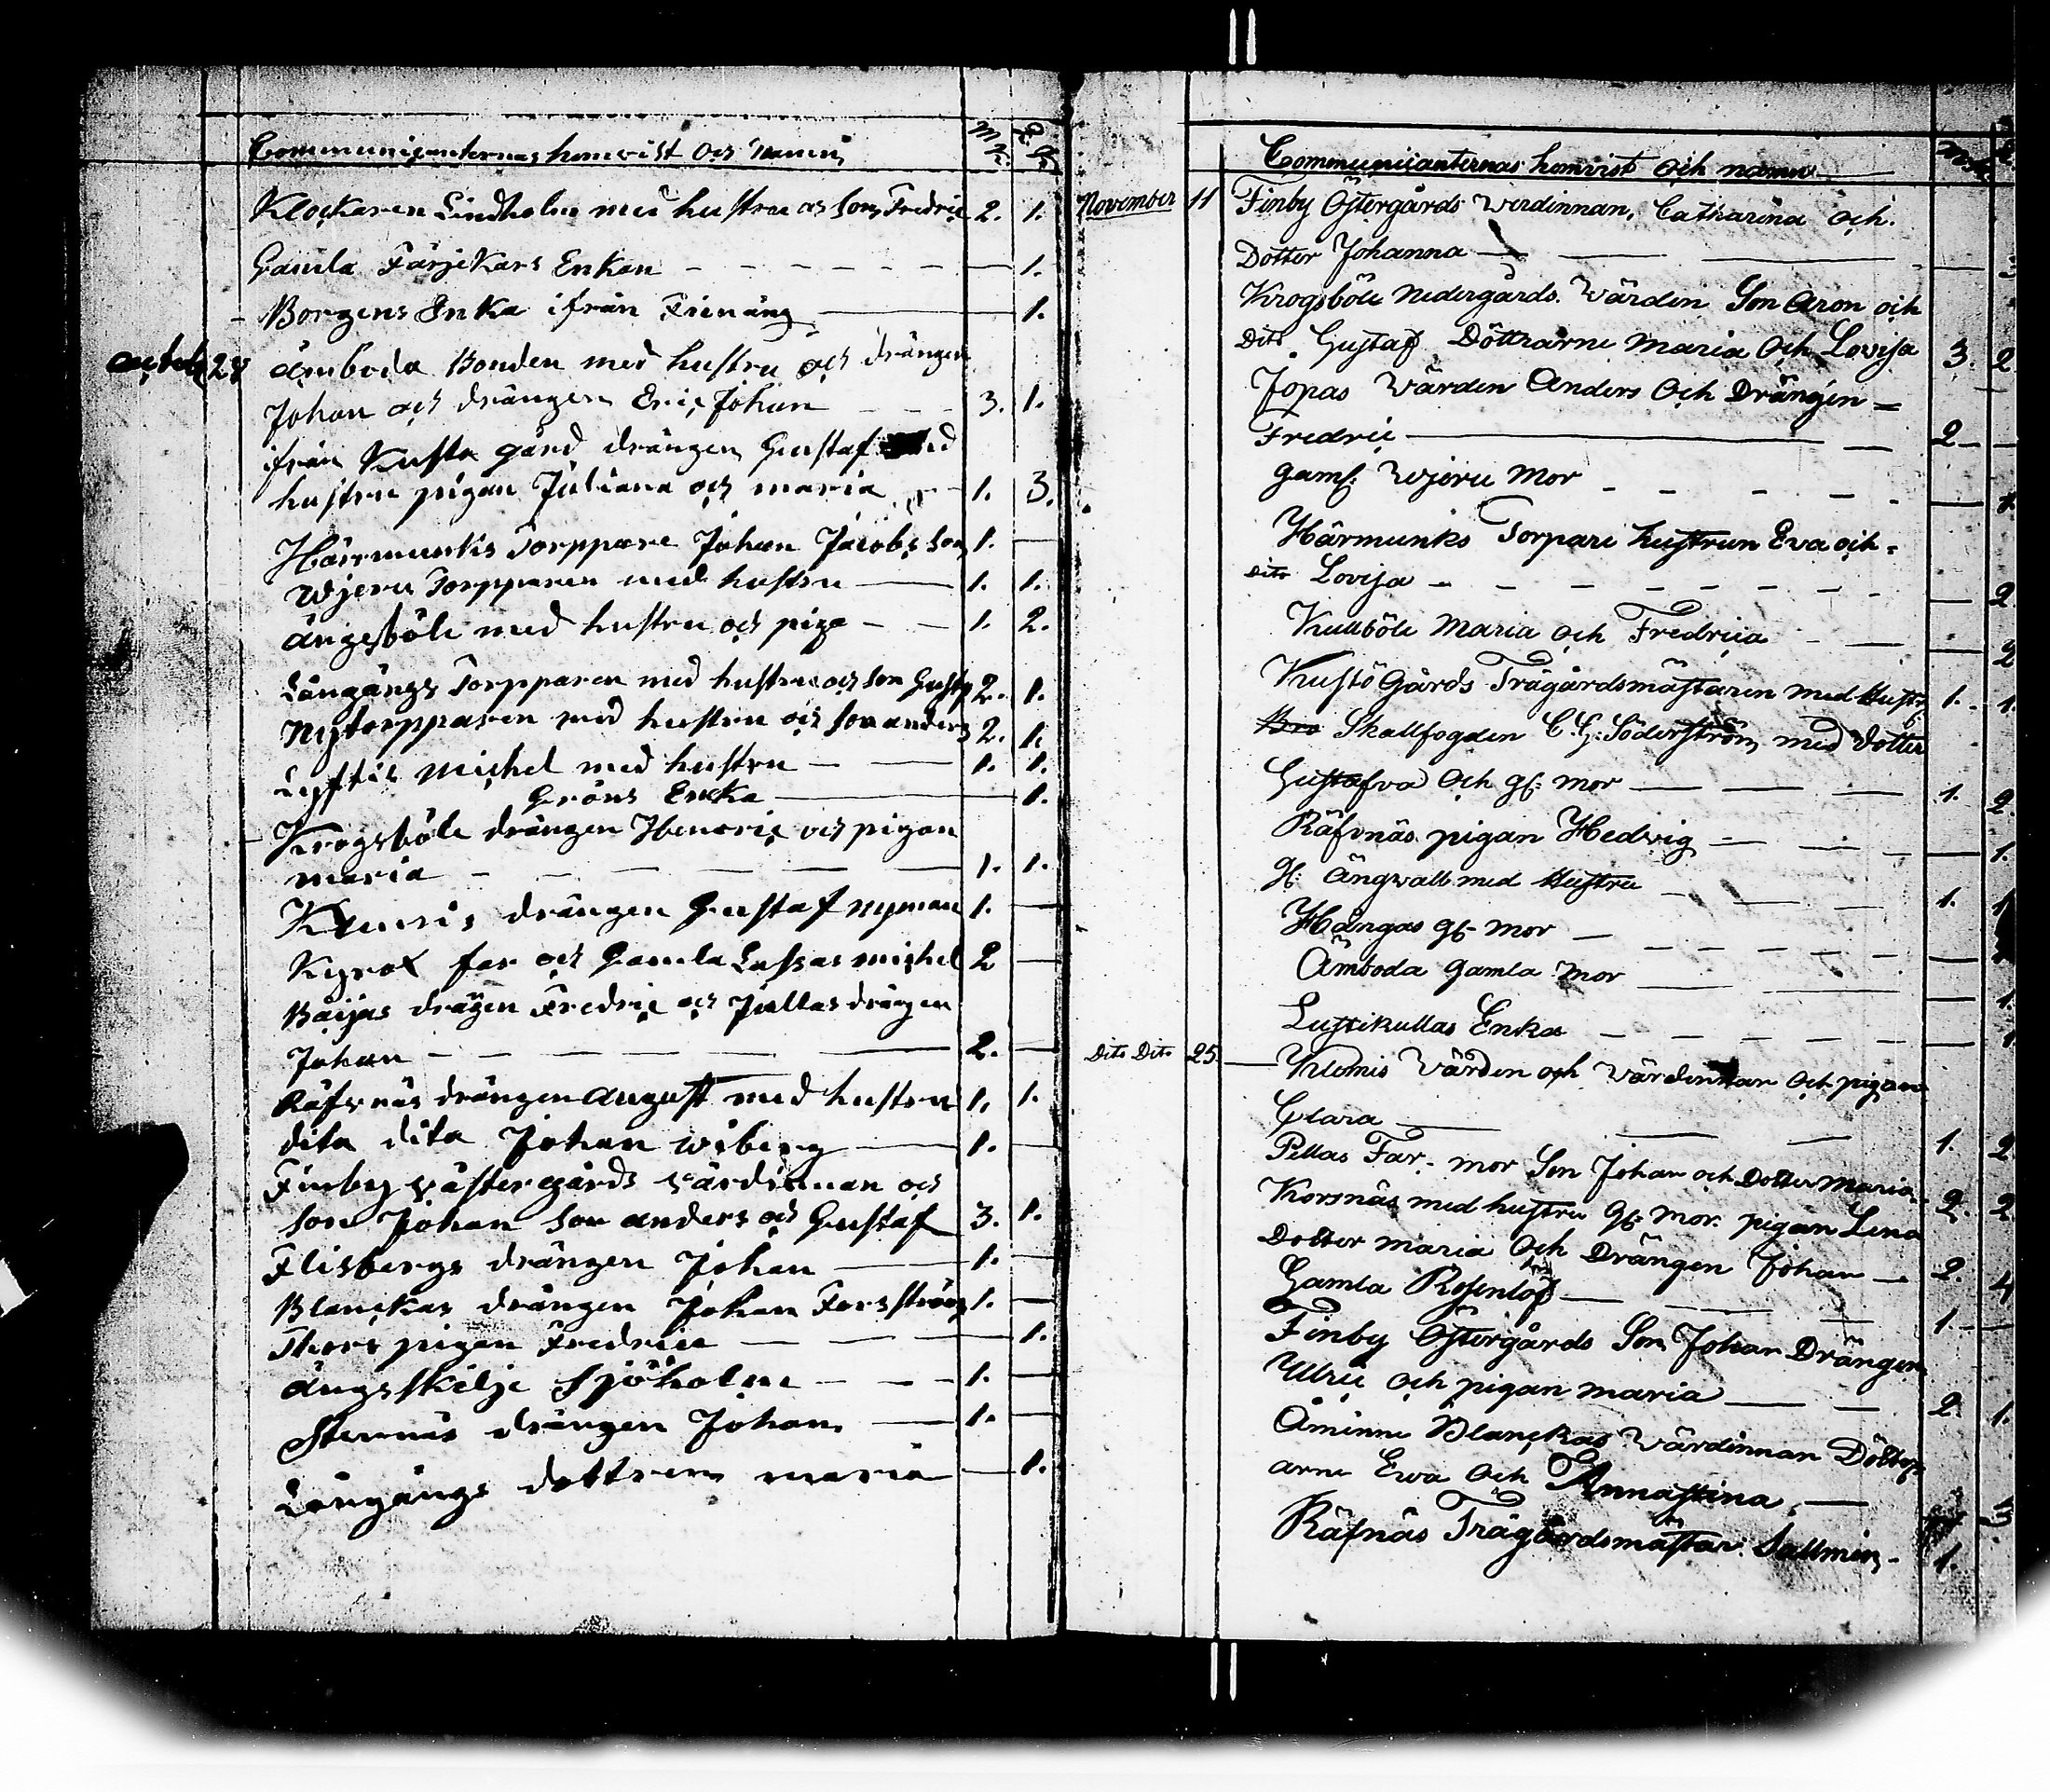 Communicanternas hemvist och Namn M.K. Q.K.
Klockaren Lindholm med hustru och Son Fredric 2. 1.
Gamla Färjekars Enkan 1.
Borgens Enka ifrån Frienäng 1.
octob 28 Åmboda Bonden med hustru och drängen
Johan och drängen Eric Johan 3. 1.
ifrån Kusto gård drängen Gustaf med
hustru pigan Juliana och maria 1. 3.
Härmunkis Torppare Johan Jacobs Son 1.
Wjeru Torpparen med hustru 1. 1.
ängesböle med hustru och piga 1. 2.
Långängs Torpparen med hustru och son Gustf 2. 1.
Nytorpparen med hustru och Son anders 2. 1.
Lyftis Michel med hustru 1. 1.
Gröns Enka 1.
Krogsböle drängen Henric och pigan
maria 1. 1.
drängen Gustaf nyman 1.
Kyrox far och Gamla Lassas michel 2
Baijas drägen Fredric och Jullas drängen
Johan 2.
Räfsnäs drängen August med hustru 1. 1.
dita dita Johan wiberg 1.
Finby västergårds värdinnan och
Son Johan Son anders och Gustaf 3. 1.
Flisbergs drängen Johan 1.
Blanckas drängen Johan Forsström 1.
Thors pigan Fredrica 1.
ängsskilje Sjöholm 1.
Sternäs drängen Johan 1.
Långängs dottren maria 1.
Communicanternas hemvist och namn M.K.
November 11 Finby Östergårds Werdinnan, Catharina och
Dotter Johanna
Krogsböle Nedergårds Wärden Son Aron och
Dito Gustaf Döttrarne Maria Och Lovisa 3. 2
Jopas Wärden Anders Och Drängen =
Fredric 2
gaml: Wjeru Mor
Härmunks Torpare hustrun Eva och
dito Lovisa 2
Kullböle Maria och Fredrica 2
Kustö Gårds Trägårdsmästaren med Hustr 1. 1.
Bro Skallfogden C. G: Söderström med dotter
Gustafva Och gl: mor 1. 2.
Räfsnäs pigan Hedvig 1.
gl: Ängwall med Hustru 1. 1
Hångas gl- mor
Åmboda Gamla mor 1.
Lustikullas Enka 1
Dito Dito 25 Klemis Värden och Värdinnan Och pigan
Clara 1. 2
Pellas Far- mor Son Johan och Dotter Maria 2. 2
Korsnäs med hustru gl: mor pigan Lena
Dotter maria Och Drängen Johan 2. 4
Gamla Rosenlöf 1.
Finby Östergårds Son Johan Drängen
Ulric och pigan maria 2. 1.
Åminne Blanckas Wärdinnan Döttr
arne Ewa Och Annastina 3
Räfnäs Trägårdsmästar Sallmén 1.